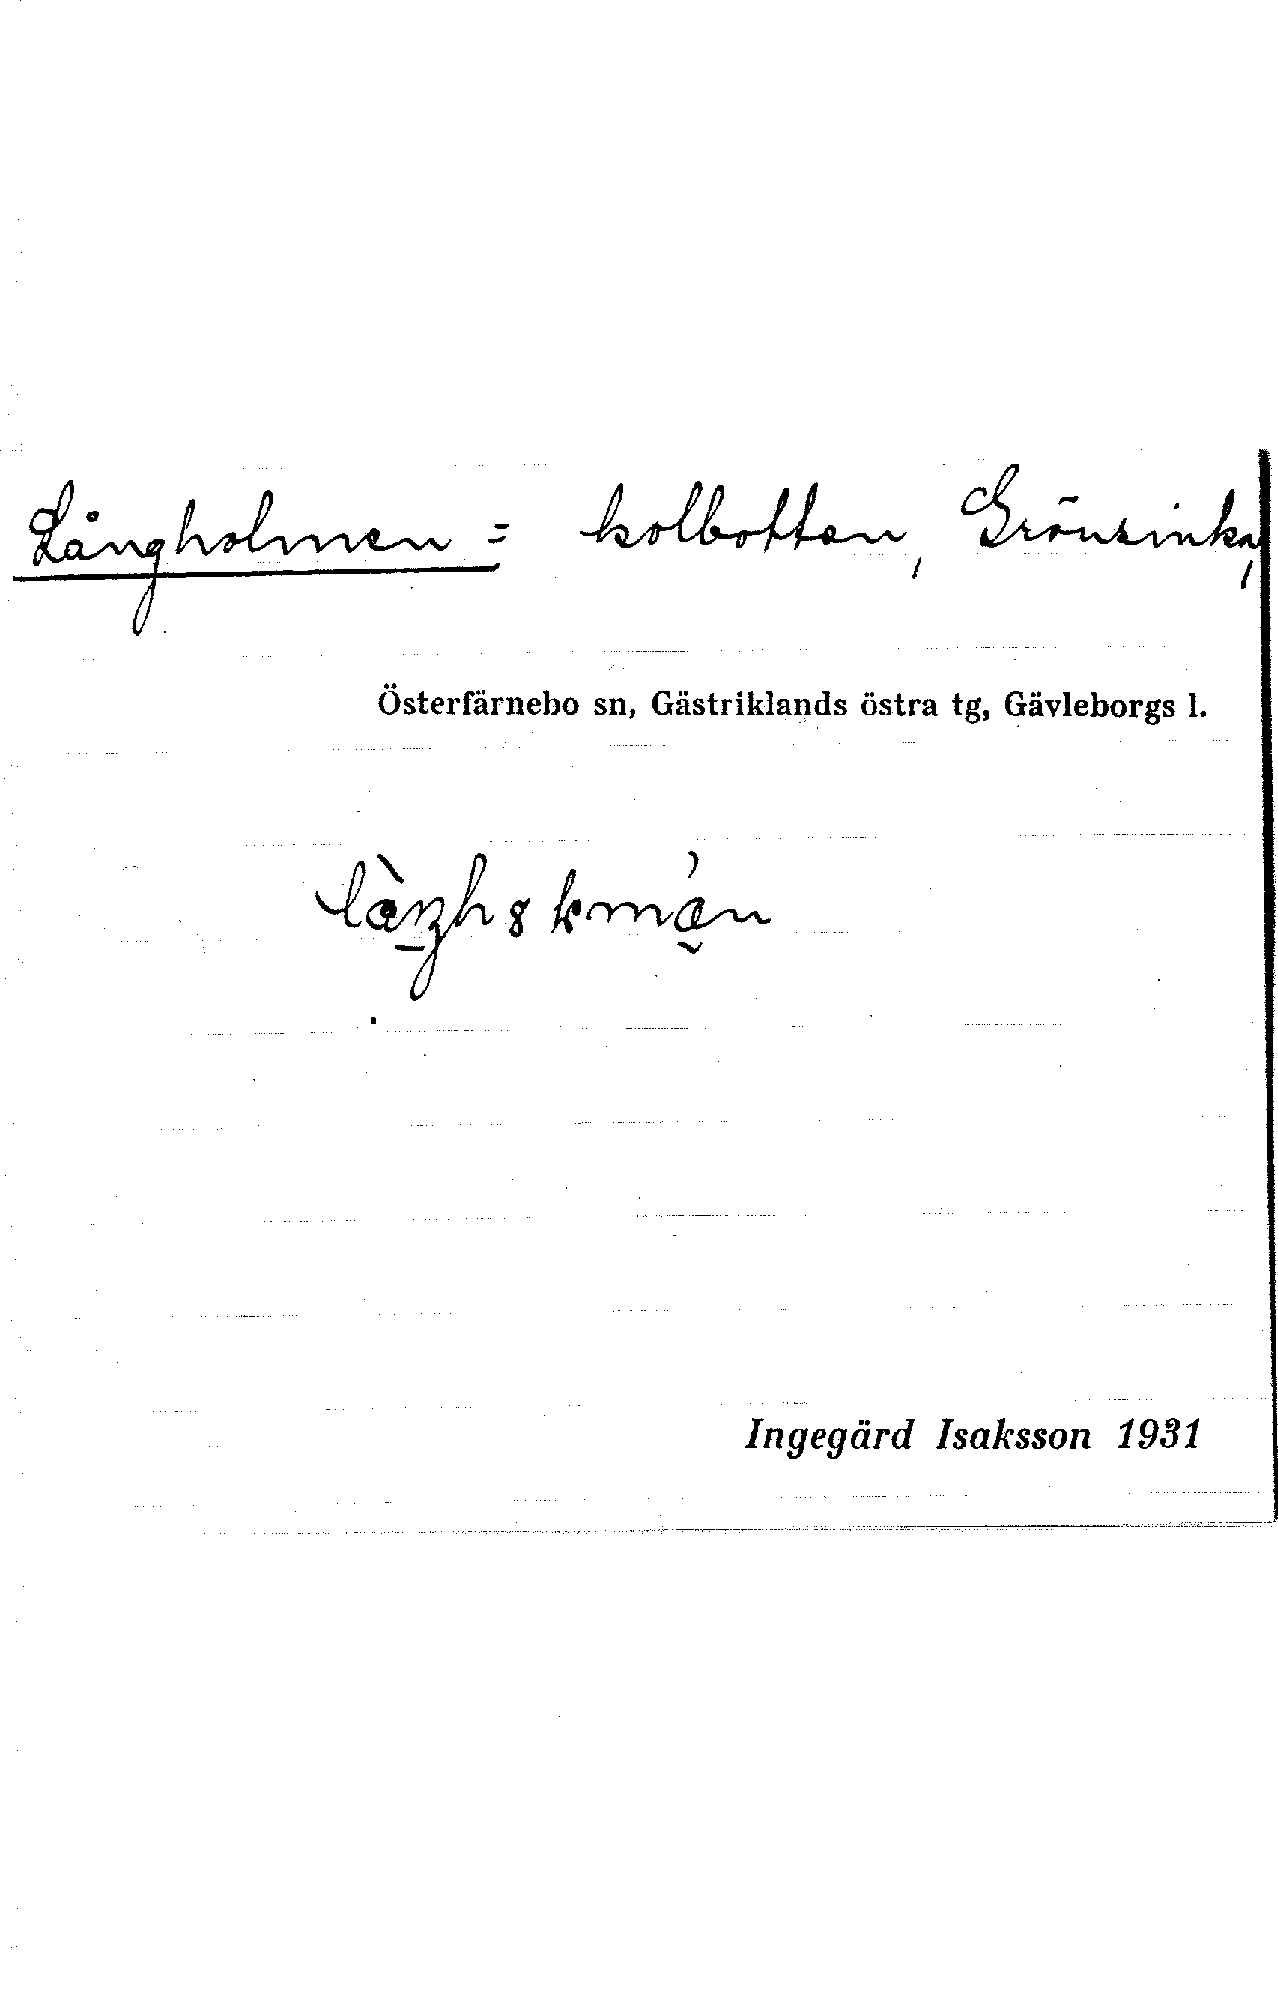 Långholmen = kolbotten, Grönsinka,
Österfärnebo sn, Gästriklands östra tg, Gävleborgs l.
Ingegärd Isaksson 1931